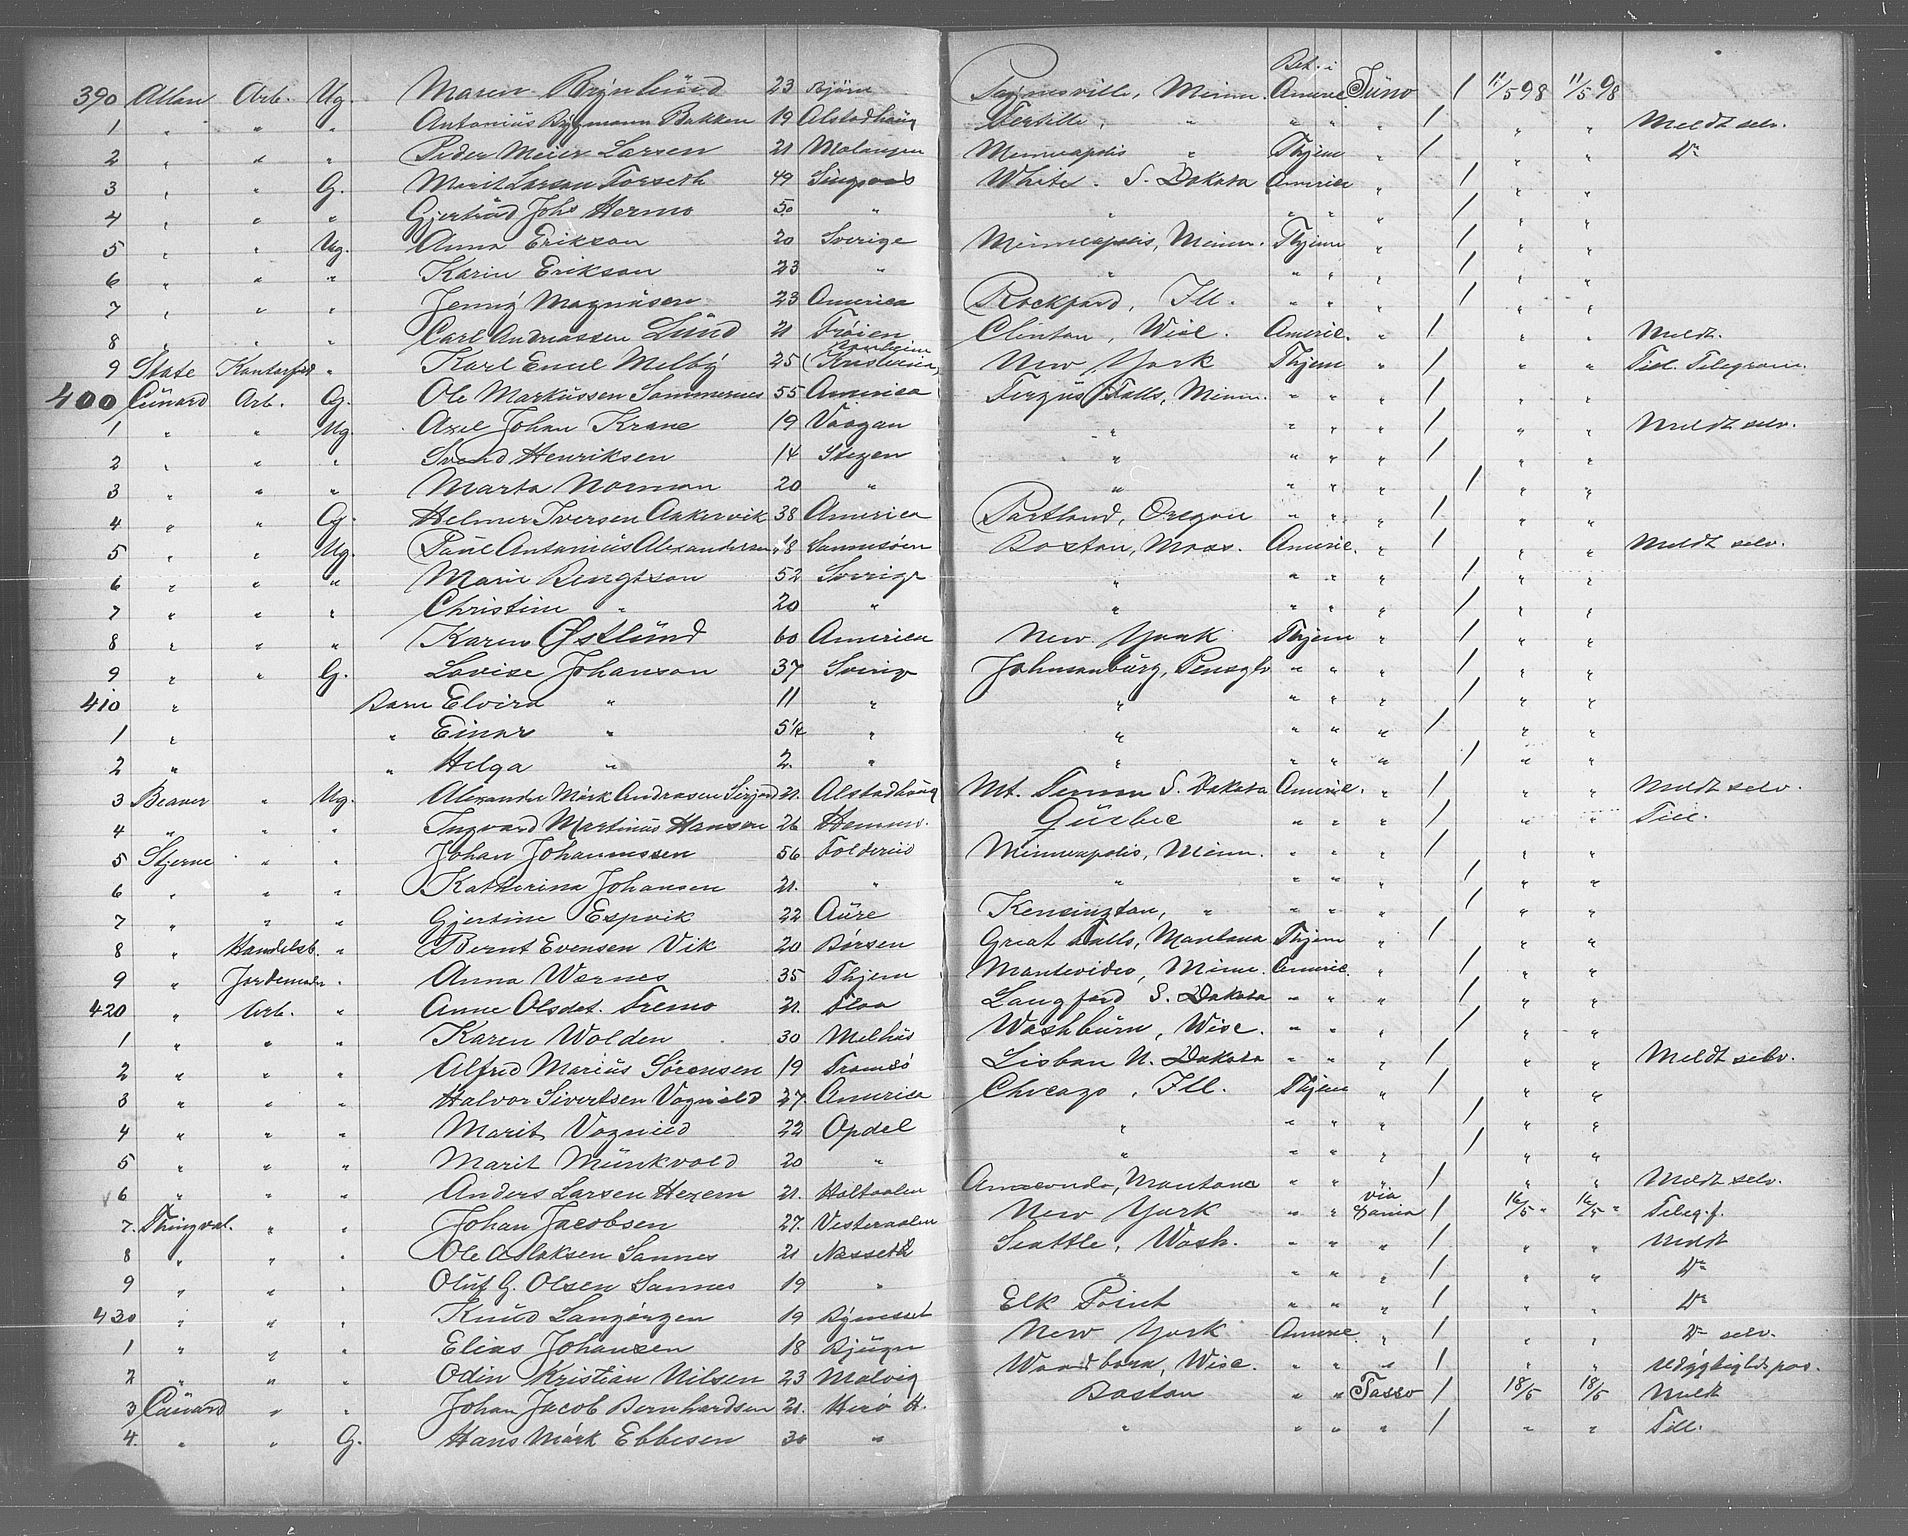 Bet. i
390 Allan Arb. Ug. Maren Brynlund 23 Bjørn Paynesville, Minn. Americ Juno / 11/5 98 11/5 98
1 " " " Antonius Brygmann Bakken 19 Alstadhaug Fertille, " " " " / " " Meldt selv.
2 " " " Peder Meier Larsen 21 Malangen Minneapolis " Thjem " / " " Do
3 " " G. Marit Larsen Forseth 49 Singsaas White. S. Dakota America " / " "
4 " " " Gjertrud Johs Hermo 50 " " " " " / " "
5 " " Ug. Anna Erikson 20 Sverige Minneapolis, Minn. Thjem " / " "
6 " " " Karin Erikson 23 " " " " " / " "
7 " " " Jenny Magnusen 23 America Rockford, Ill. " " " / " "
8 " " " Carl Andreassen Lund 21 Frøien Clinton, Wisc. Americ. " / " " Meldt.
9 State Kontorfuld " Karl Emil Melby 25 New York Thjem " / " " Tiel. Telegram.
400 Cunard Arb. G. Ole Markussen Sommernes 55 America Fergus Falls, Minn. " " " / " "
1 " " Ug. Axel Johan Krane 19 Vaagan " " " " / " " Meldt selv.
2 " " " Svend Henriksen 14 Stegen " " " " / " "
3 " " " Marta Norman 20 " " " " " / " "
4 " " G. Helmer Iversen Aakervik 38 America Portland, Oregon " " " / " "
5 " " Ug. Paul Antonius Alexandersen 18 Sannesøen Boston, Mass. Americ. " / " " Meldt selv.
6 " " " Marie Bengtson 52 Sverige " " " " / " "
7 " " " Christine " 20 " " " " " / " "
8 " " " Karen Østlund 60 America New York Thjem " / " "
9 " " G. Lovise Johanson 37 Sverige Johnsonburg, Pensylv " " " / " "
410 " Barn Elvira " 11 " " " " " / " "
1 " " Einar " 5 1/2 " " " " " / " "
2 " " Helga " 2. " " " " " / " "
3 Beaver " Ug. Alexander Mørk Andreasen 21. Alstadhaug Mt. Vernon S. Dakota Americ. " / " " Meldt selv.
4 " " " Ingvard Martinus Hansen 26 Hemnes. Quebec " " " / " " Till.
5 Stjerne " " Johan Johannessen 56 Folderied Minneapolis, Minn. " " " / " "
6 " " " Katherina Johansen 21. " " " " " / " "
7 " " " Gjertine Espvik 22 Aure Kensington, " " " " / " "
8 " Handelsb. " Bernt Evensen Vik 20 Børsen Great Falls, Montana Thjem " / " "
9 " Jordemoder " Anna Warnes 35 Thjem Montevideo, Minn. Americ. " / " "
420 " Arb. " Anne Olsdat. Fremo 21. Floa Langford S. Dakota " " " / " "
1 " " " Karen Wolden 30 Melhus Washburn, Wisc. " " " / " "
2 " " " Alfred Marius Sørensen 19 Tromsø Lisbon N. Dakota " " " / " " Meldt selv.
3 " " " Halvor Sivertsen Vognild 27. America Chicago, Ill. Thjem " / " "
4 " " " Marit Vognild 22 Opdal " " " " / " "
5 " " " Marit Munkvold 20 " " " " " / " "
6 " " " Anders Larsen Hexem 21. Holtaalen Anaconda, Montana " " " / " " Meldt selv.
7. Thingval. " " Johan Jacobsen 27. Vesteraalen New York " " via Dania / 16/5 " 16/5 " Teleg.f.
8 " " " Ole Olaksen Sannes 21 Nesseth Seattle, Wash. " " " / " " Meldt
9 " " " Oluf G. Olsen Sannes 19 " " " " " / " " Do
430 " " " Knud Langørgen 19 Bynesset Elk Point " " " / " " Do
1 " " " Elias Johansen 18 Bjugn New York Americ. " / " " Do selv.
2 " " " Odin Kristian Nilsen 23 Malvig Woodboro, Wisc. " " " / " " Udygtigheds pas.
3 Cunard " " Johan Jacob Bernhardsen 21. Herø H. Boston " " Tasso / 18/5 18/5 Meldt
4. " " G. Hans Mørk Ebbesen 30 " " " " " / " " Till.